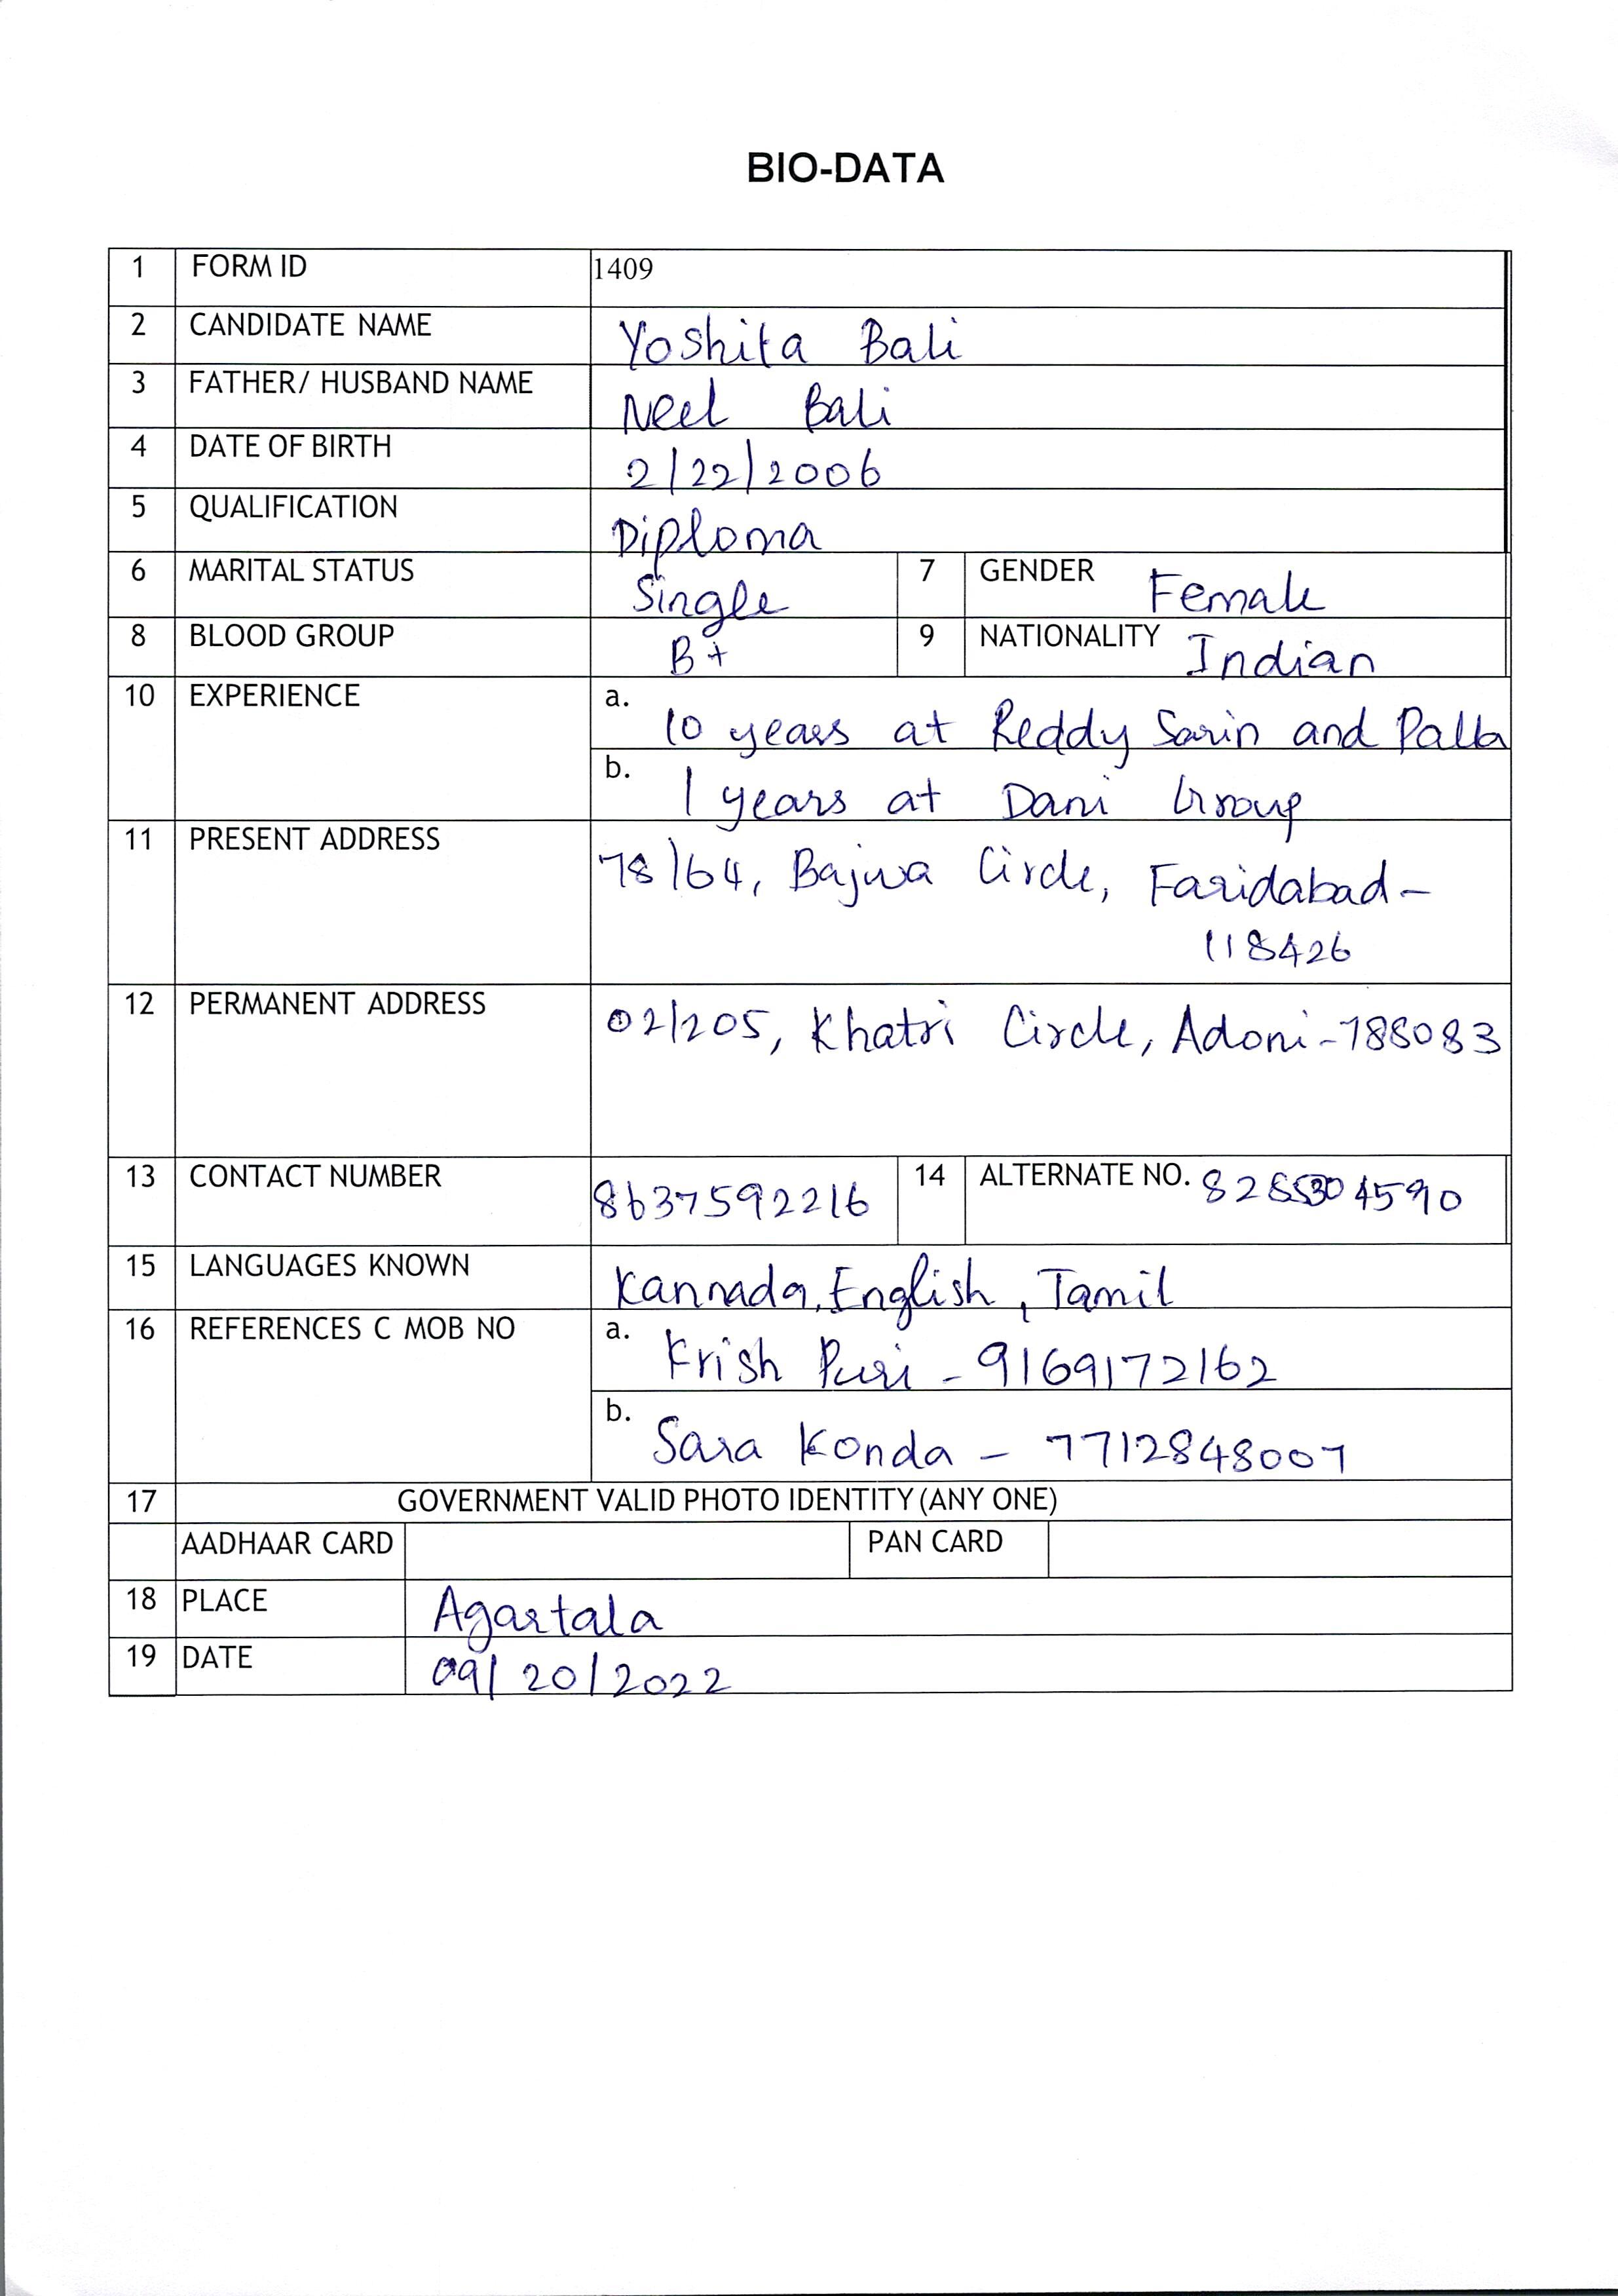 BIO-DATA
1 FORM ID 1409
2 CANDIDATE NAME Yoshita Bali
3 FATHER/ HUSBAND NAME Neel Bali
4 DATE OF BIRTH 2/22/2006
5 QUALIFICATION Diploma
6 MARITAL STATUS Single 7 GENDER Female
8 BLOOD GROUP B+ 9 NATIONALITY Indian
10 EXPERIENCE a. 10 years at Reddy Sarin and Palla
b. 1 years at Dani Group
11 PRESENT ADDRESS 78/64, Bajwa Circle, Faridabad-
118426
12 PERMANENT ADDRESS 02/205, Khatri Circle, Adoni-788083
13 CONTACT NUMBER 8637592216 14 ALTERNATE NO.
15 LANGUAGES KNOWN Kannada, English, Tamil
16 REFERENCES C MOB NO a. Krish Puri - 9169172162
b. Sara Konda - 7712848007
17 GOVERNMENT VALID PHOTO IDENTITY (ANY ONE)
AADHAAR CARD PAN CARD
18 PLACE Agartala
19 DATE 09/20/2022